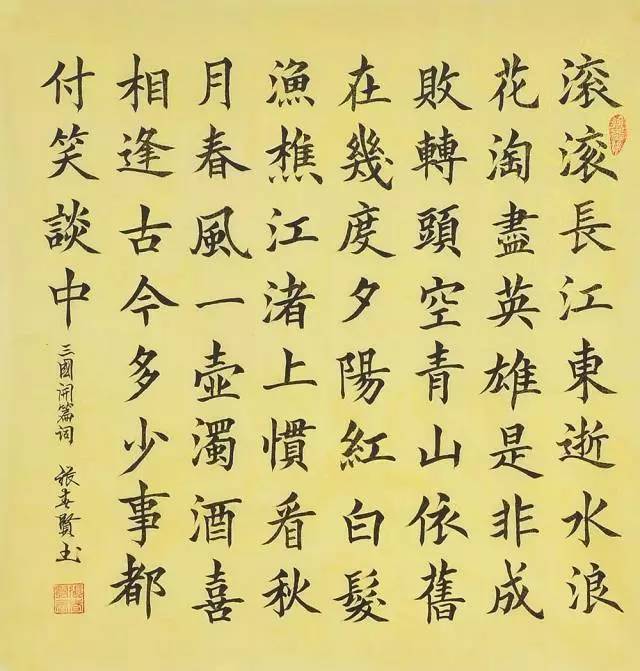 滚滚長江東逝水浪
花淘盡英雄是非成
敗轉頭空青山依舊
在幾度夕陽紅白髮
漁樵江渚上慣看秋
月春風一壺濁酒喜
相逢古今多少事都
付笑談中
三國開篇词 春賢书